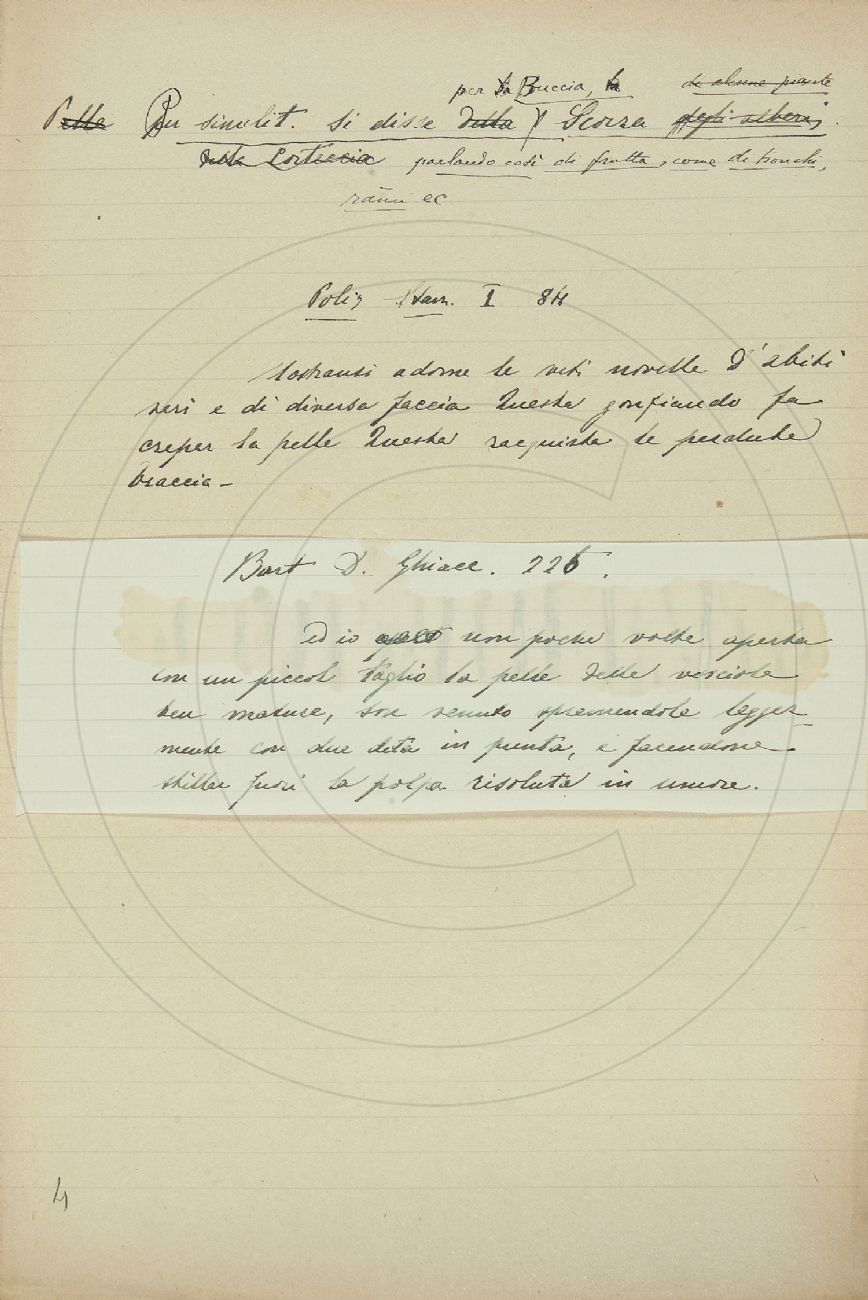 per la Buccia, la di alcune piante
Pelle Per similit. si disse della Scorza degli alberi,
della Corteccia parlando così di frutta, come di tronchi,
rami ec
Poliz Stan. I 84
Mostransi adorne le viti novelle D'abiti
veri e di diversa faccia Questa gonfiando fa
creper la pelle Questa racquista le perdute
braccia -
Bart D. Ghiacc. 226.
ed io non poche volte aperta
con un piccol taglio la pelle delle vesciole
ben mature, son venuto spremendole legger-
mente con due dita in punta, e facendone
stillar fuori la polpa risoluta in umore.
4